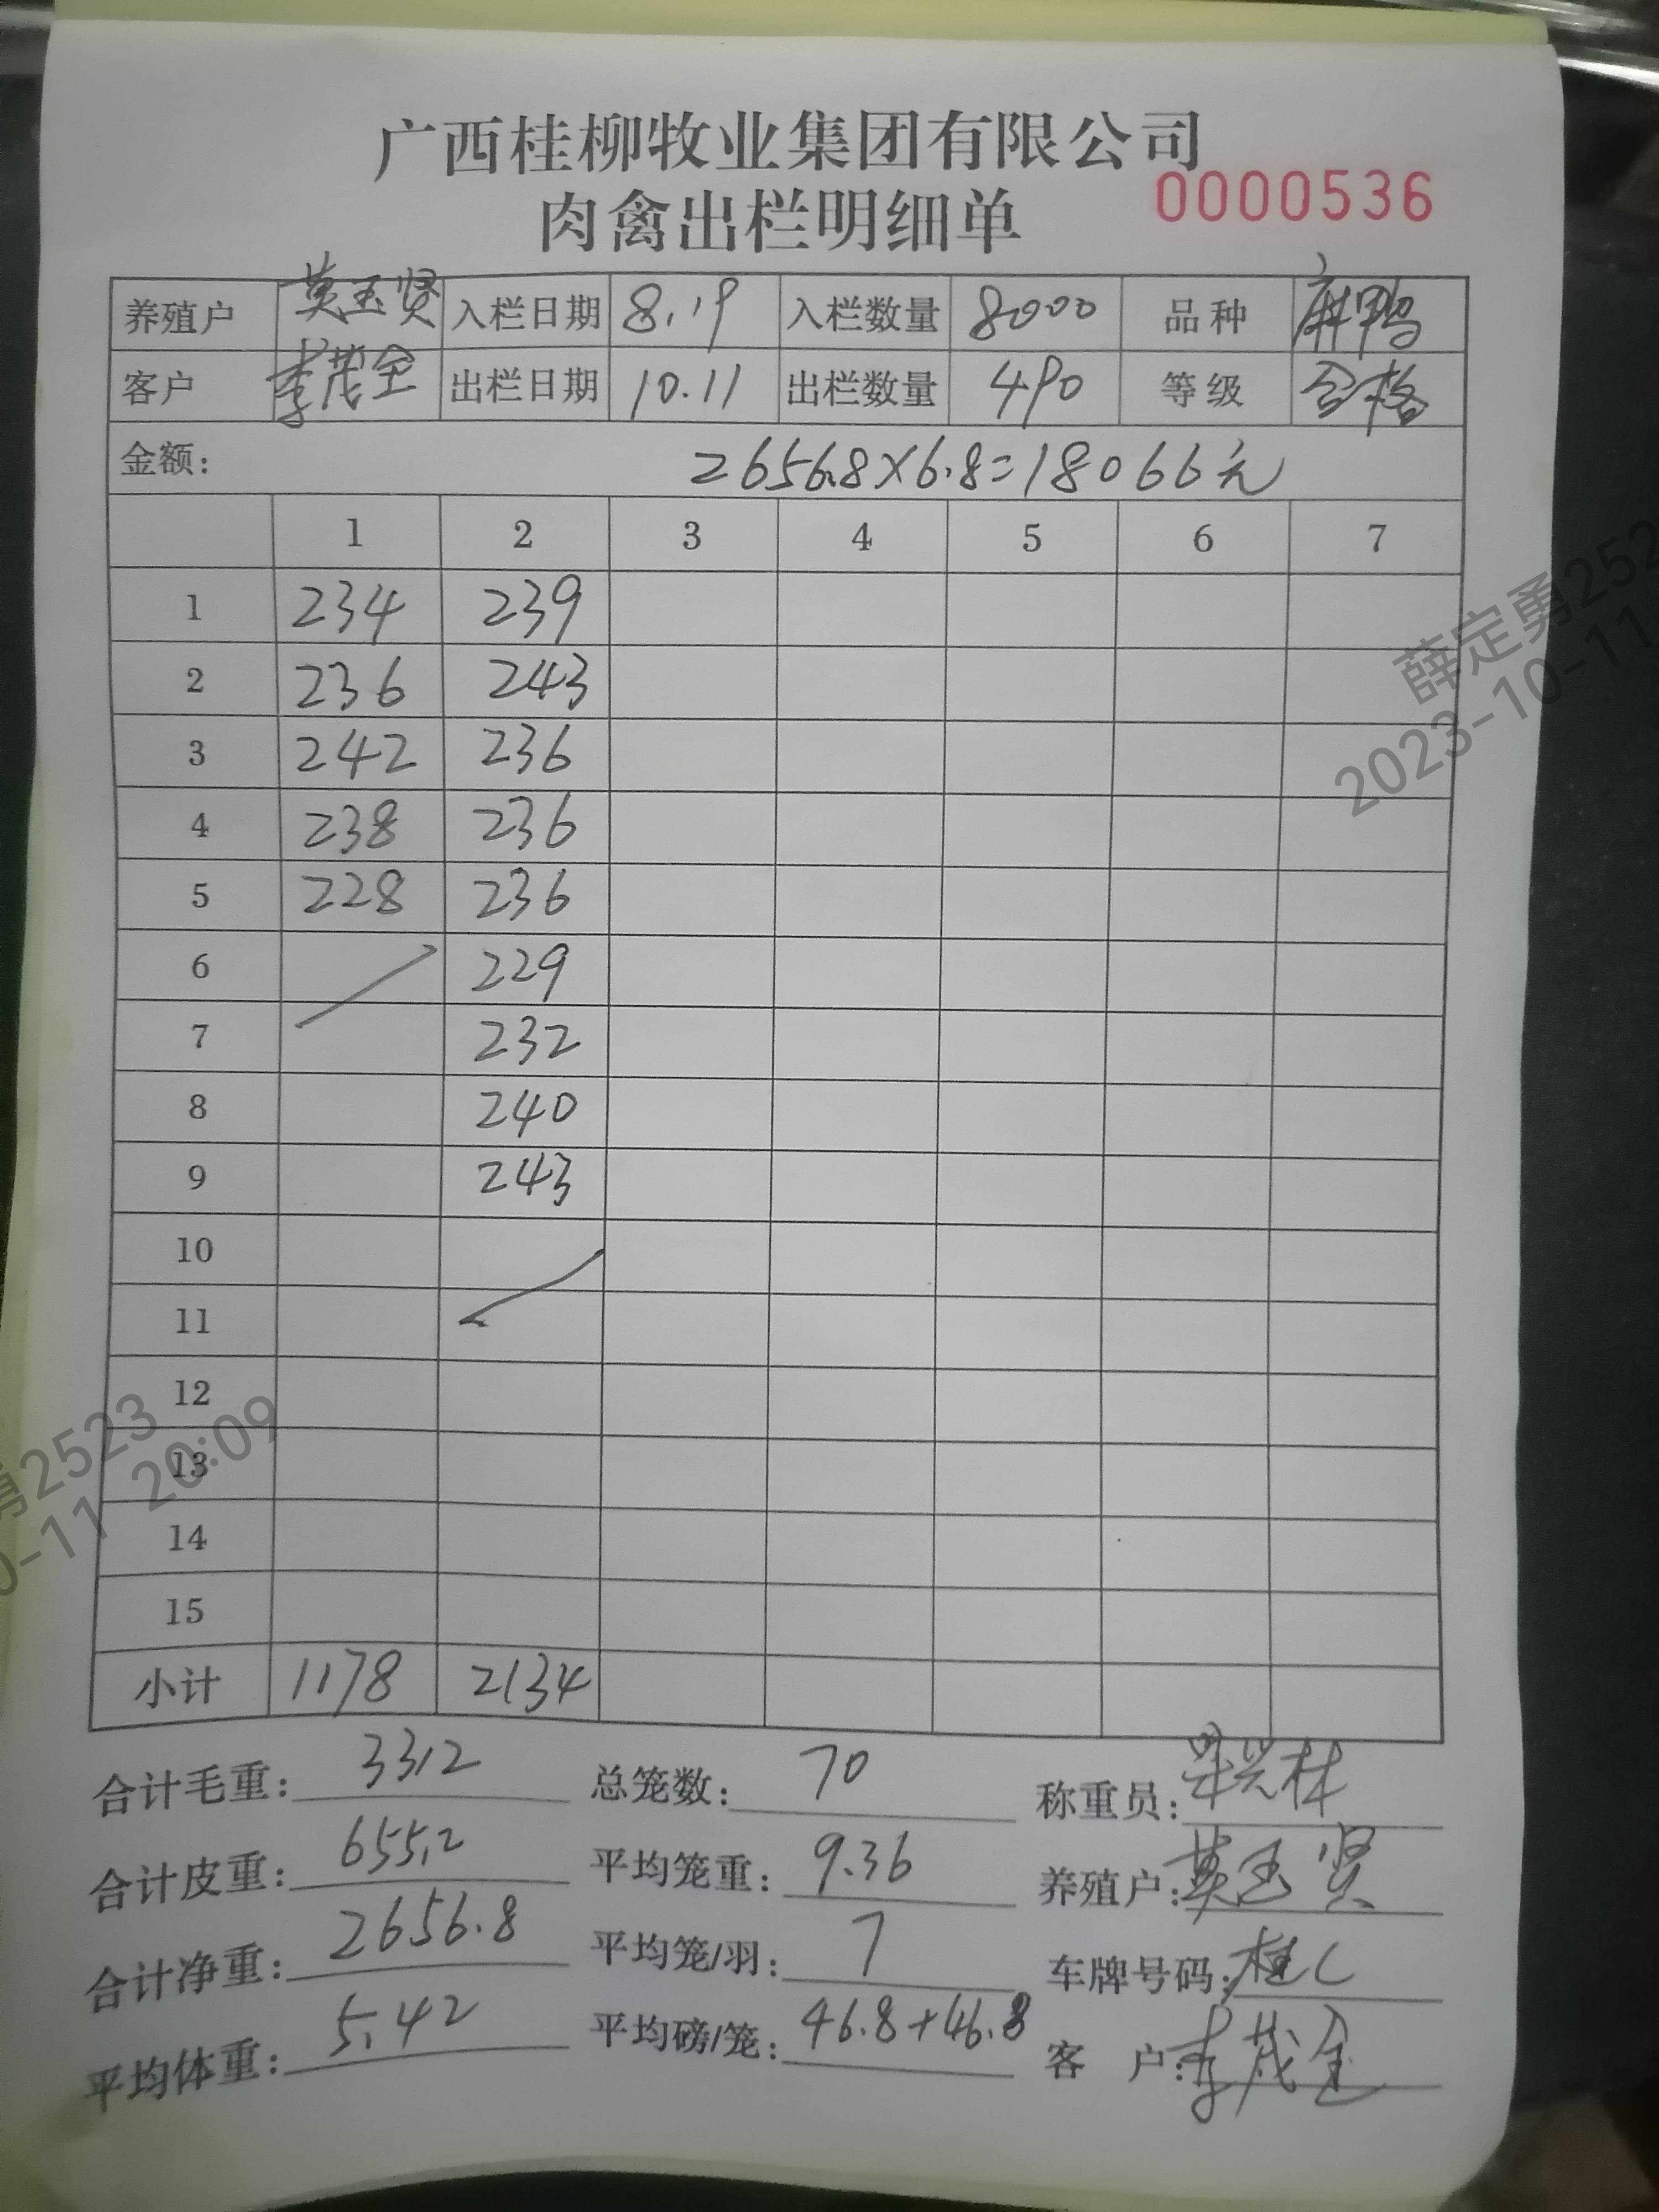 广西桂柳牧业集团有限公司
肉禽出栏明细单 0000536
养殖户 莫玉贤 入栏日期 8.19 入栏数量 8000 品种 麻鸭
客户 李茂全 出栏日期 10.11 出栏数量 490 等级 合格
金额: 2656.8×6.8=18066元
1 2 3 4 5 6 7
1 234 239
2 236 243
3 242 236
4 238 236
5 228 236
6 229
7 232
8 240
9 243
10
11
12
13
14
15
小计 1178 2134
合计毛重: 3312 总笼数: 70 称重员:
合计皮重: 655.2 平均笼重: 9.36 养殖户: 莫玉贤
合计净重: 2656.8 平均笼/羽: 7 车牌号码: 桂C
平均体重: 5.42 平均磅/笼: 46.8+46.8 客 户: 李茂全
薛定勇252
2023-10-11
勇2523
0-11 20:09